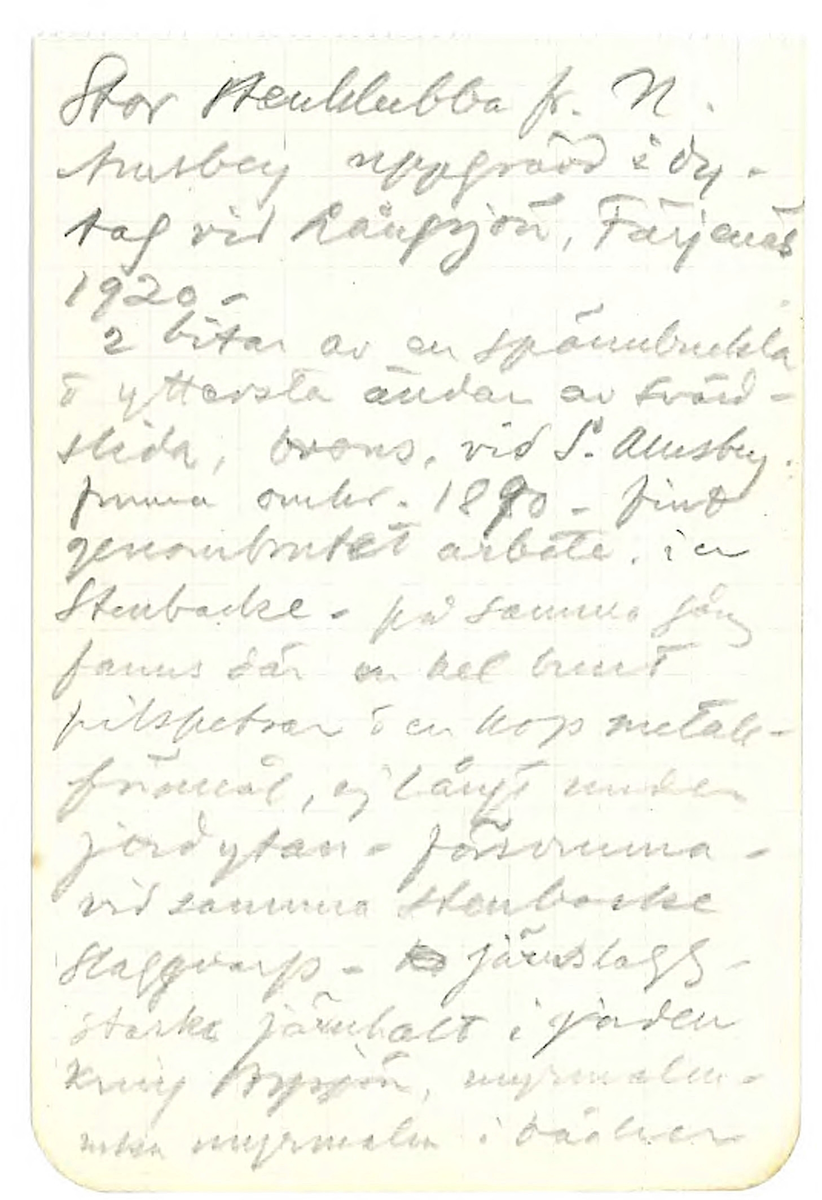 Stor stenklubba fr. N.
Amsbey uppgrävd i dy-
tag vid Långsjön, Färjenäs
1920 -
2 bitar av en spännbuckla
o yttersta ändan av svärd-
slida, brons, vid S. Amsbey.
funna omkr. 1890 - fint
genombrutet arbete. i en
Stenbacke - på samma gång
fanns där en hel bunt
pilspetsar o en hop metall-
föremål, ej långt under
jordytan - försvunna -
vid samma stenbacke
Slaggvarp - järnslagg -
starka järnhalt i jorden
kring Bysjön, myrmalm -
myrmalm i bäcken